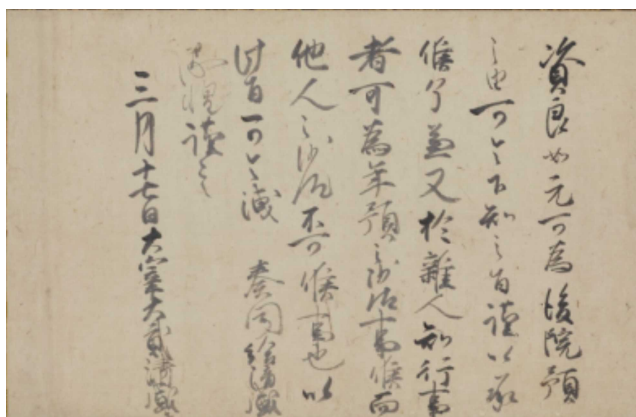 資良如元可為後院預
之由可令下知之旨謹以承
候了兼又於雑人知行事
者可為年預之沙汰事候而
他人之沙汰不可候事也以
此旨可令洩 奏同給清盛
恐惶謹言
三月十七日大宰大貳清盛